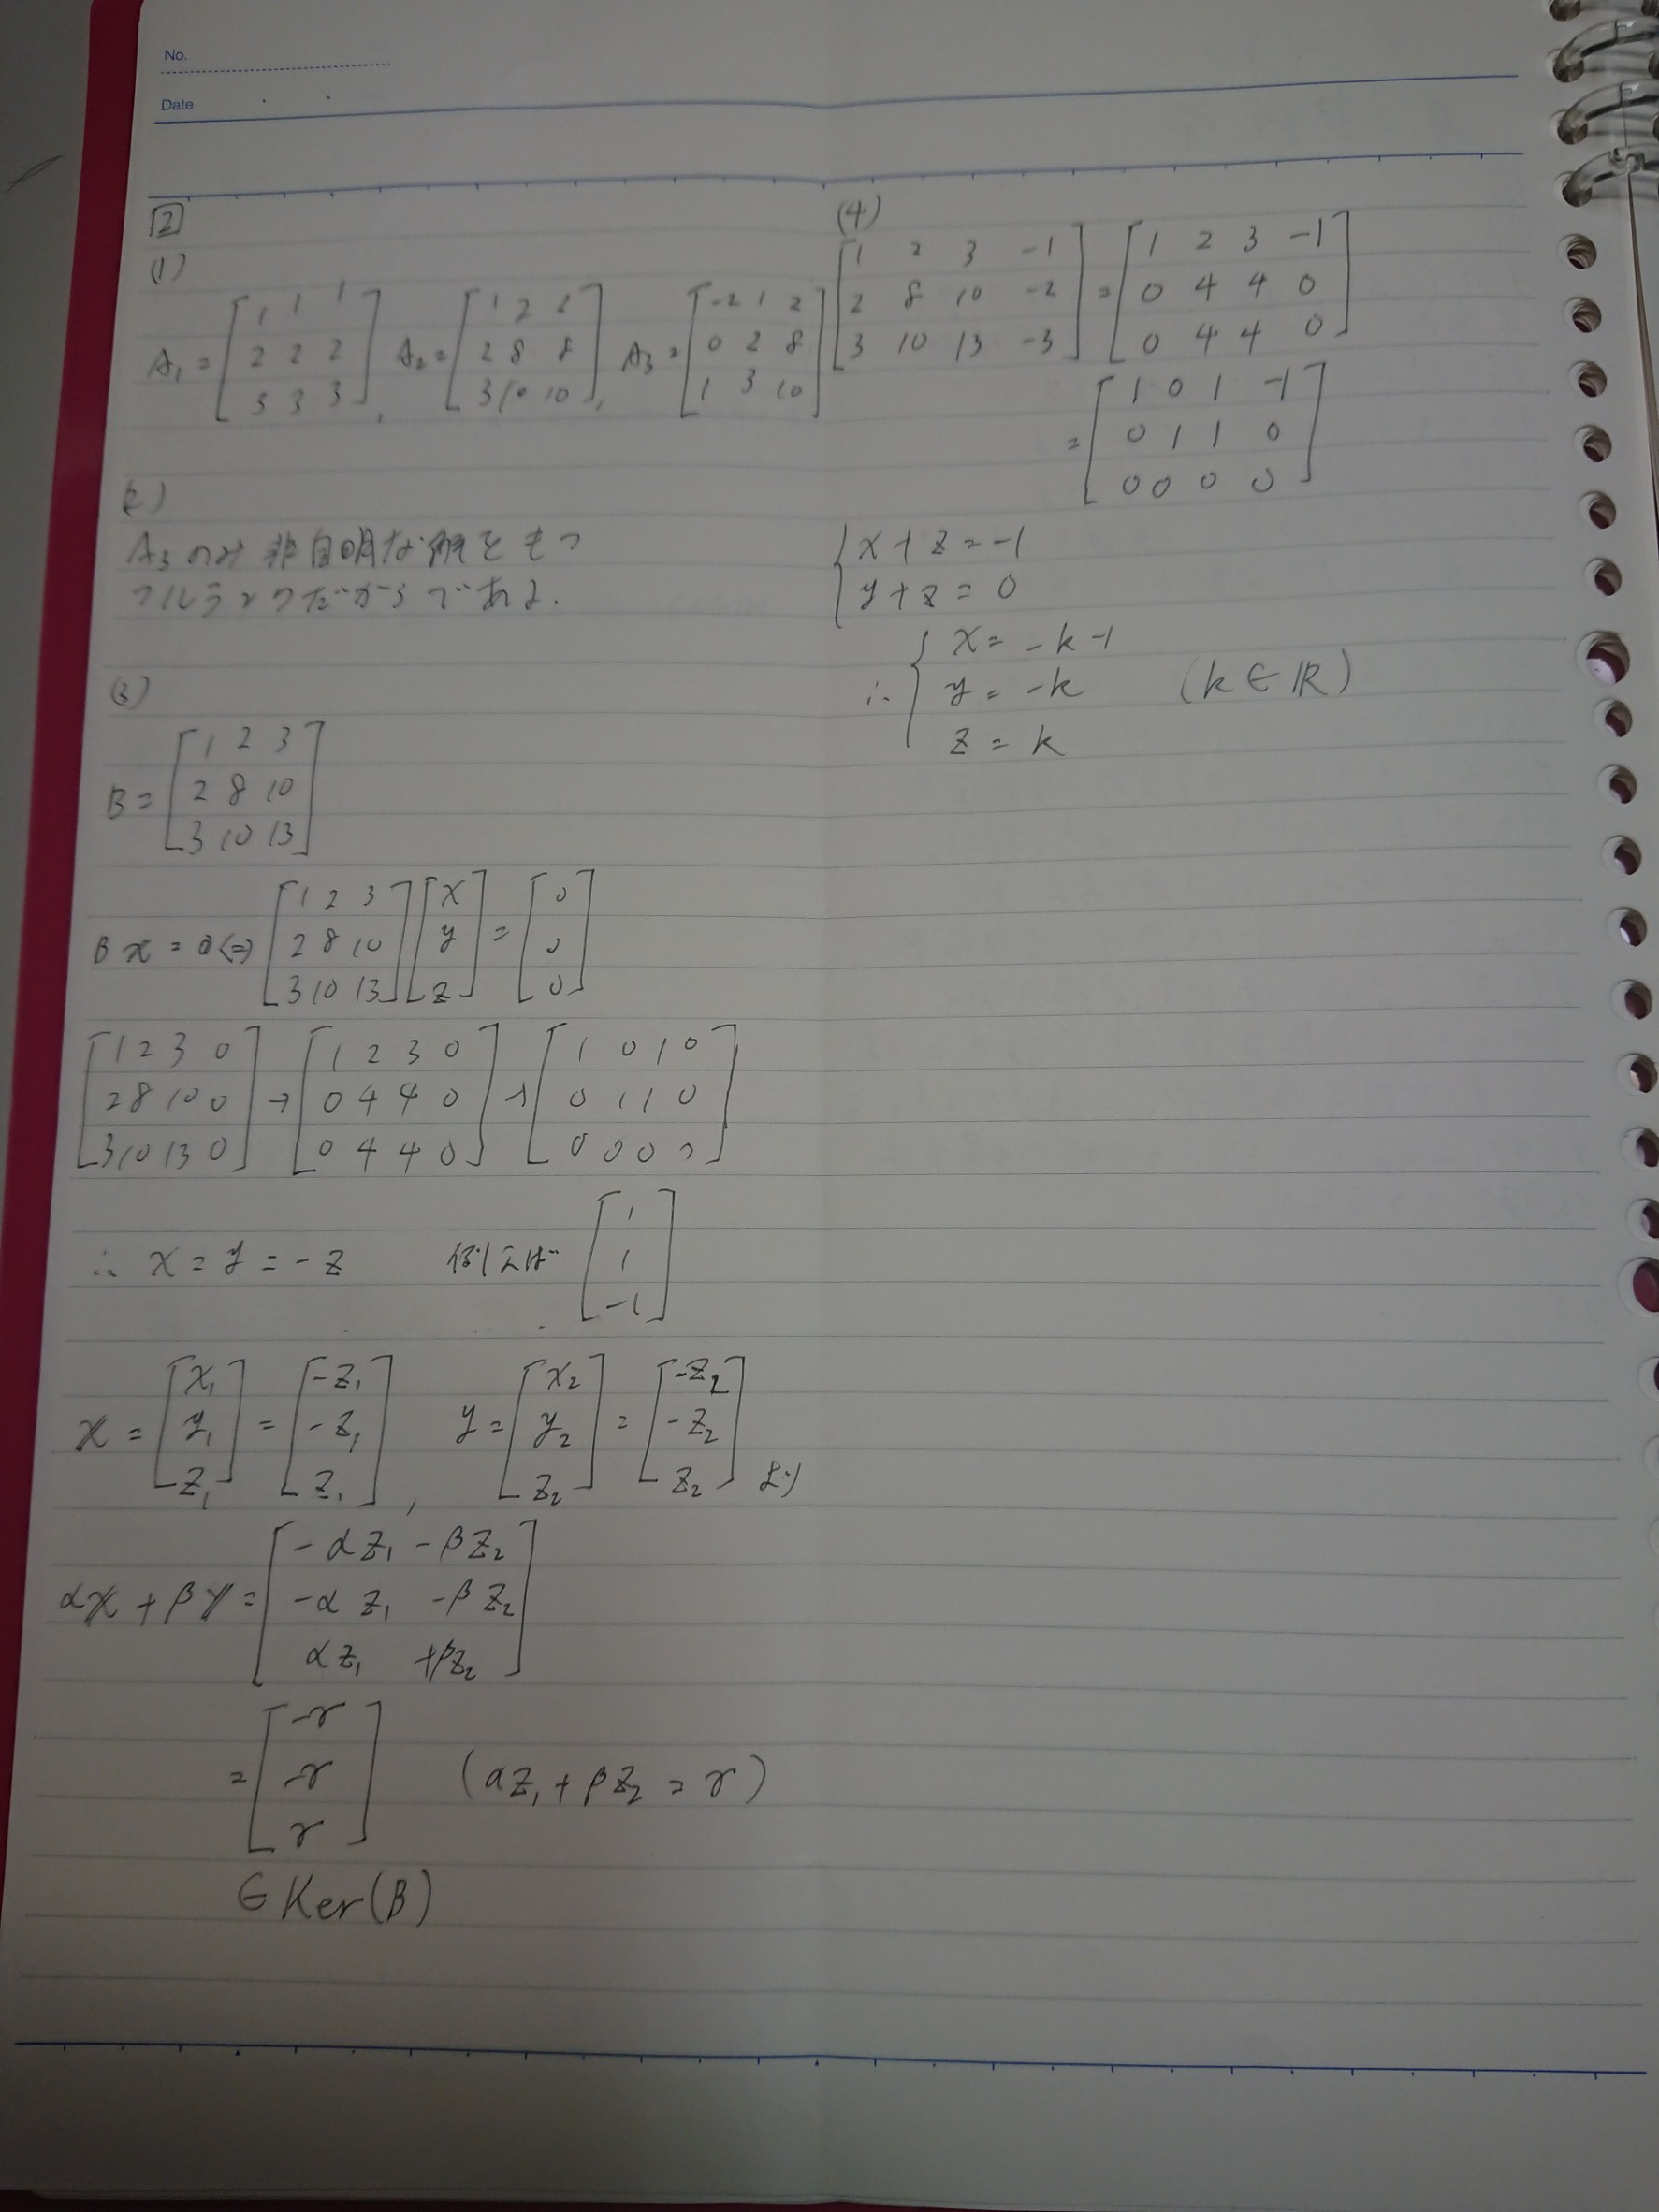 No.
Date
[2]
(1)
A₁ = [1 1 1; 2 2 2; 3 3 3], A₂ = [1 2 2; 2 8 8; 3 10 10], A₃ = [-2 1 2; 0 2 8; 1 3 10]
(2)
A₃のみ非自明な解をもつ
フルランクだからである.
(3)
B = [1 2 3; 2 8 10; 3 10 13]
Bx = 0 ⇔ [1 2 3; 2 8 10; 3 10 13] [x; y; z] = [0; 0; 0]
[1 2 3 0; 2 8 10 0; 3 10 13 0] → [1 2 3 0; 0 4 4 0; 0 4 4 0] → [1 0 1 0; 0 1 1 0; 0 0 0 0]
∴ x = y = -z 例えば [1; 1; -1]
x = [x₁; y₁; z₁] = [-z₁; -z₁; z₁], y = [x₂; y₂; z₂] = [-z₂; -z₂; z₂] より
αx + βy = [-αz₁ -βz₂; -αz₁ -βz₂; αz₁ +βz₂]
= [-γ; -γ; γ] (αz₁ + βz₂ = γ)
∈ Ker(B)
(4)
[1 2 3 -1; 2 8 10 -2; 3 10 13 -3] = [1 2 3 -1; 0 4 4 0; 0 4 4 0]
= [1 0 1 -1; 0 1 1 0; 0 0 0 0]
{ x + z = -1
y + z = 0
∴ { x = -k-1
y = -k (k ∈ ℝ)
z = k